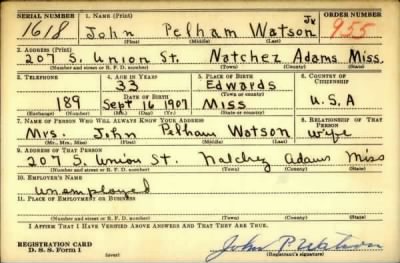 SERIAL NUMBER 1. NAME (Print) ORDER NUMBER
1618 John Pelham Watson Jr 955
(First) (Middle) (Last)
2. ADDRESS (Print)
207 S. Union St. Natchez Adams Miss.
(Number and street or R. F. D. number) (Town) (County) (State)
3. TELEPHONE 4. AGE IN YEARS 5. PLACE OF BIRTH 6. COUNTRY OF CITIZENSHIP
33 Edwards
DATE OF BIRTH (Town or county)
189 Sept 16 1907 Miss U.S.A
(Exchange) (Number) (Mo.) (Day) (Yr.) (State or country)
7. NAME OF PERSON WHO WILL ALWAYS KNOW YOUR ADDRESS 8. RELATIONSHIP OF THAT PERSON
Mrs. John Pelham Watson wife
(Mr., Mrs., Miss) (First) (Middle) (Last)
9. ADDRESS OF THAT PERSON
207 S. Union St. Natchez Adams Miss
(Number and street or R. F. D. number) (Town) (County) (State)
10. EMPLOYER'S NAME
unemployed
11. PLACE OF EMPLOYMENT OR BUSINESS
(Number and street or R. F. D. number) (Town) (County) (State)
I AFFIRM THAT I HAVE VERIFIED ABOVE ANSWERS AND THAT THEY ARE TRUE.
REGISTRATION CARD John P Watson
D. S. S. Form 1 (over) (Registrant's signature)